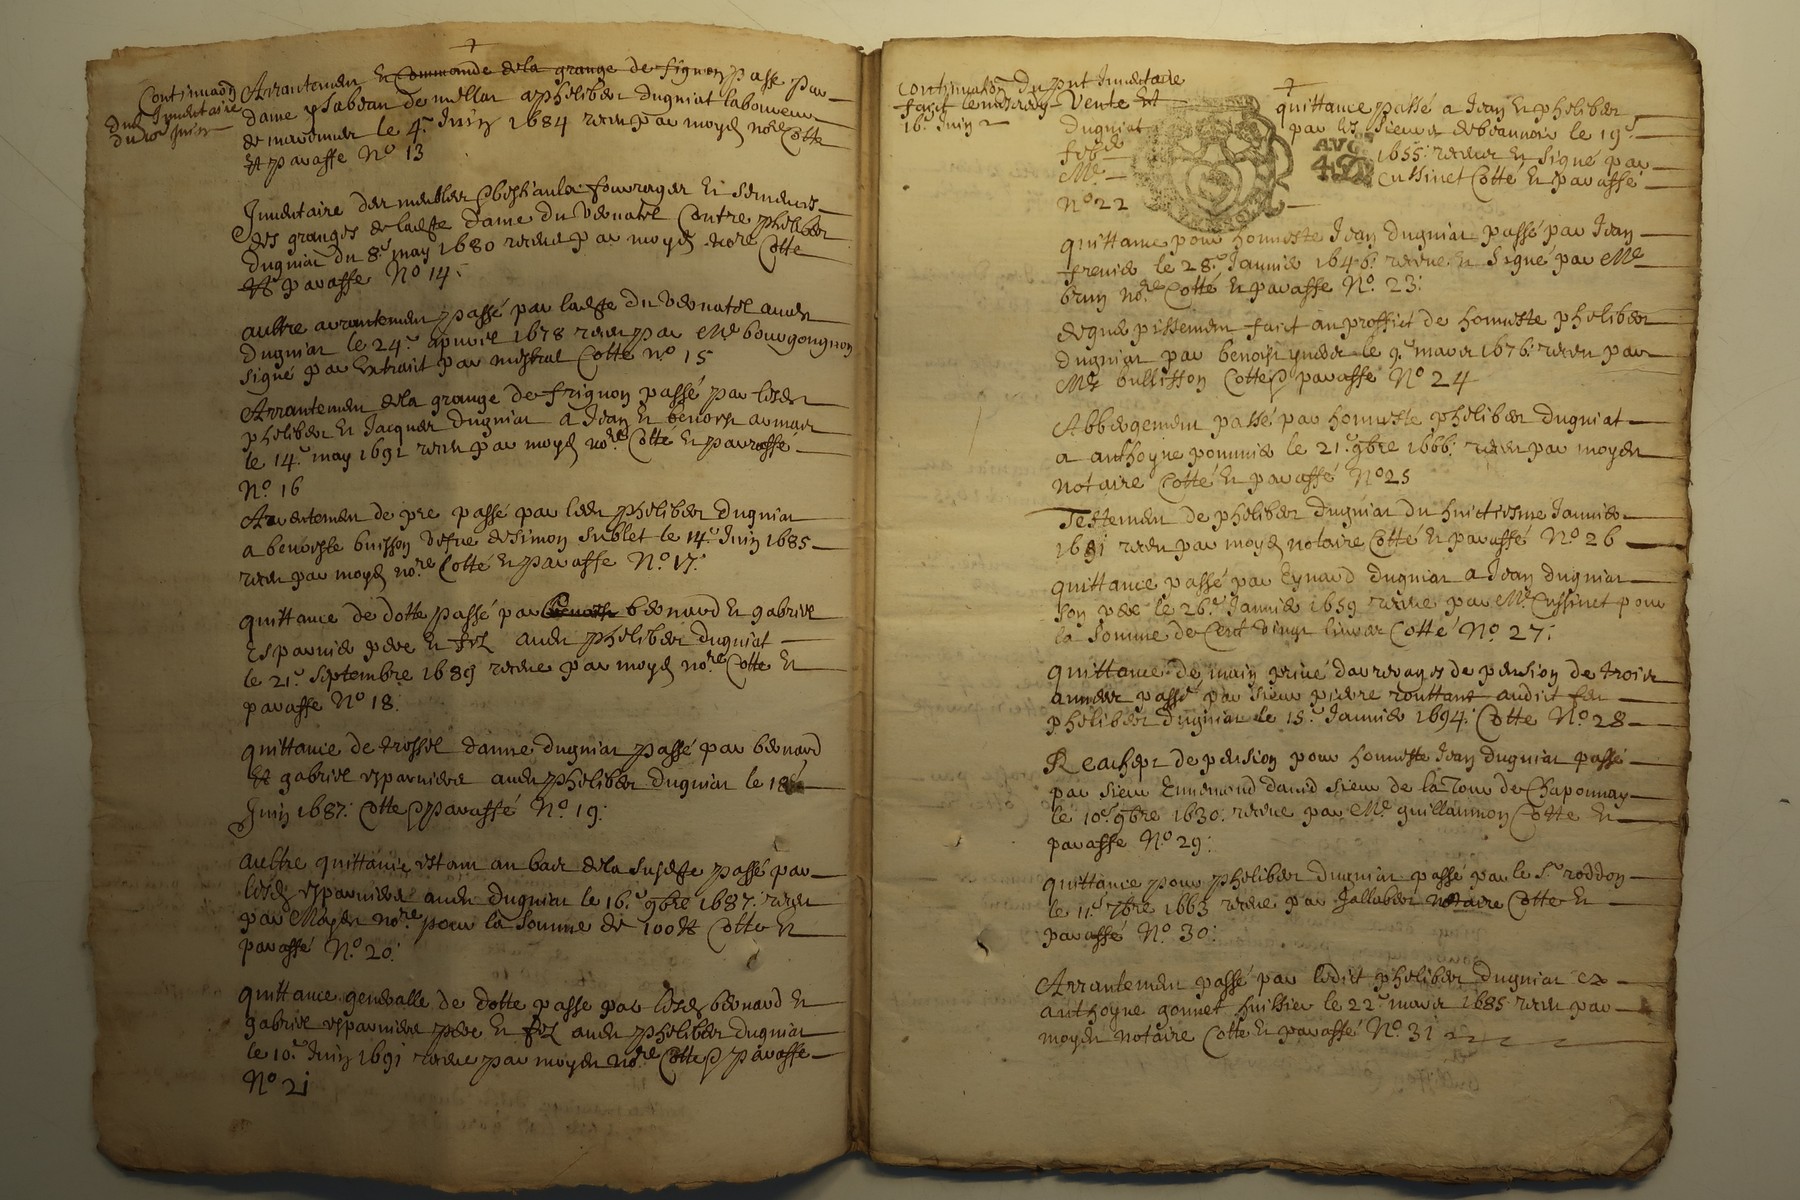 Continuaõn
dud Inventaire
du 10e Juin
Arrantement et Commande de la grange de frignon passe par
dame ysabeau de mellar a phelibert dugniat laboureur
de marennes le 4e Juin 1684 receu par moyen nore Cotte
et paraffe No 13
Inventaire des meubles Cbestiaulx fourrages et semences
des granges de ladte dame du vernatel Contre phelibert
dugniat du 8e may 1680 receue par moyen nore Cotte
et paraffe No 14
aultre arrantement passé par ladte du vernatel audt
dugniat le 24e apvril 1678 receu par Me bourgongnon
signé par Extrait par mistral Cotte no 15
Arrantement de la grange de frignon passé par lesdt
phelibert et Jacques dugniat a Jean et benoist armar
le 14e may 1691 receu par moyen nore Cotte et parraffé
No 16
Arrentement de pre passé par ledt phelibert dugniat
a benoiste buisson vefve de simon sublet le 14e Juin 1685
receu par moyen nore Cotté et paraffe No 17
quittance de dotte passé par bernard et gabriel
Esparnier pere et filz audt phelibert dugniat
le 21e septembre 1689 receue par moyen nore Cotte et
paraffe No 18
quittance de trossel danne dugniat passé par bernard
et gabriel esparniere audt phelibert dugniat le 18e
Juin 1687 Cotte et paraffé No 19
aultre quittance estant au bas de la susdte passé par
lesdt esparniere audt dugniat le 16e 9bre 1687 receu
par Moyen nore pour la somme de 100 tt Cotte et
paraffé No 20
quittance generalle de dotte passe par lesdt bernard et
gabriel esparniere pere et filz audt phelibert dugniat
le 10e Juin 1691 receue par moyen nore Cotte et paraffe
No 21
Continuaõn du pnt Inventaire
faict le mesme
16e Juin
Vente et quittance passé a Jean et phelibert
dugniat par les sieurs de beauvoir le 19e
feb 1655 receue et signé par
Me Cussinet Cotté et paraffé
No 22
AVG
quittance pour honneste Jean dugniat passé par Jean
frenier le 28e Janvier 1646 receue et signé par Me
brun nore Cotté et paraffe No 23
deguepissement faict au proffict de honneste phelibert
dugniat par benoist ynard le 9e mars 1676 receu par
Me bullisson Cotte et paraffe No 24
Abbergement passé par honneste phelibert dugniat
a anthoyne pommier le 21e 9bre 1666 receu par moyen
notaire Cotté et paraffé No 25
Testement de phelibert dugniat du huictiesme Janvier
1691 receu par moyen notaire Cotté et paraffé No 26
quittance passé par Eynard dugniat a Jean dugniat
son pere le 26e Janvier 1659 receue par Me Cussinet pour
la somme de Cent vingt livres Cotté No 27
quittance de main privé darreyages de pension de trois
annees passé par sieur pierre routtant audict feu
phelibert dugniat le 15e Janvier 1694 Cotte No 28
Reachept de pension pour honneste Jean dugniat passé
par sieur Ennemond david sieur de la Tour de Chaponnay
le 10e 9bre 1630 receue par Me guillaumon Cotte et
paraffe No 29
quittance pour phelibert dugniat passé par le Sr roddon
le 11e 7bre 1663 receue par Jallabert notaire Cotte et
paraffé No 30
Arrantement passé par ledict phelibert dugniat a
anthoyne gonnet huissier le 22e mars 1685 receu par
moyen notaire Cotte et paraffé No 31